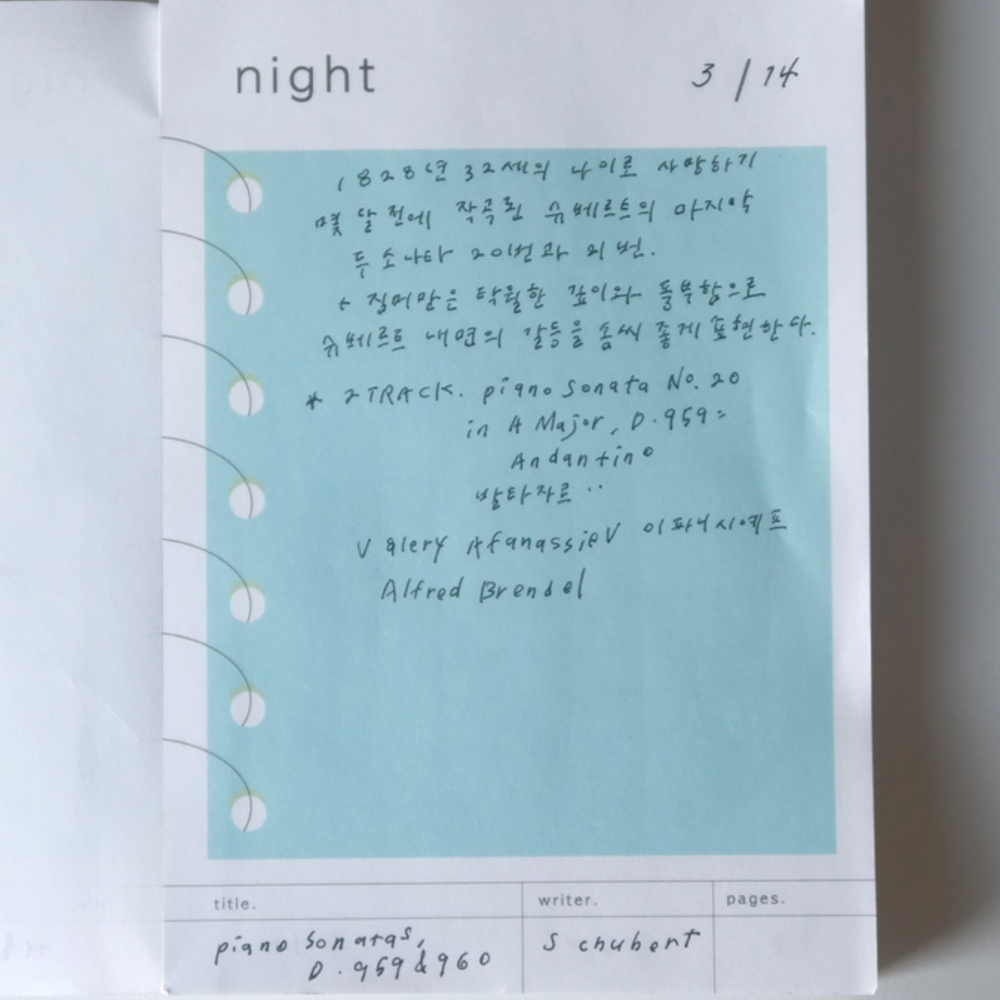 night
3/14
1828년 32세의 나이로 사망하기
몇 달 전에 작곡된 슈베르트의 마지막
두 소나타 20번과 21번.
짐머만은 탁월한 깊이와 풍부함으로
슈베르트 내면의 갈등을 솜씨 좋게 표현한다.
* 2TRACK. piano Sonata No. 20
in A Major, D.959:
Andantino
발타자르 ..
Valery Afanassiev 아파나시예프
Alfred Brendel
title.
writer.
pages.
piano Sonatas,
D.959&960
Schubert